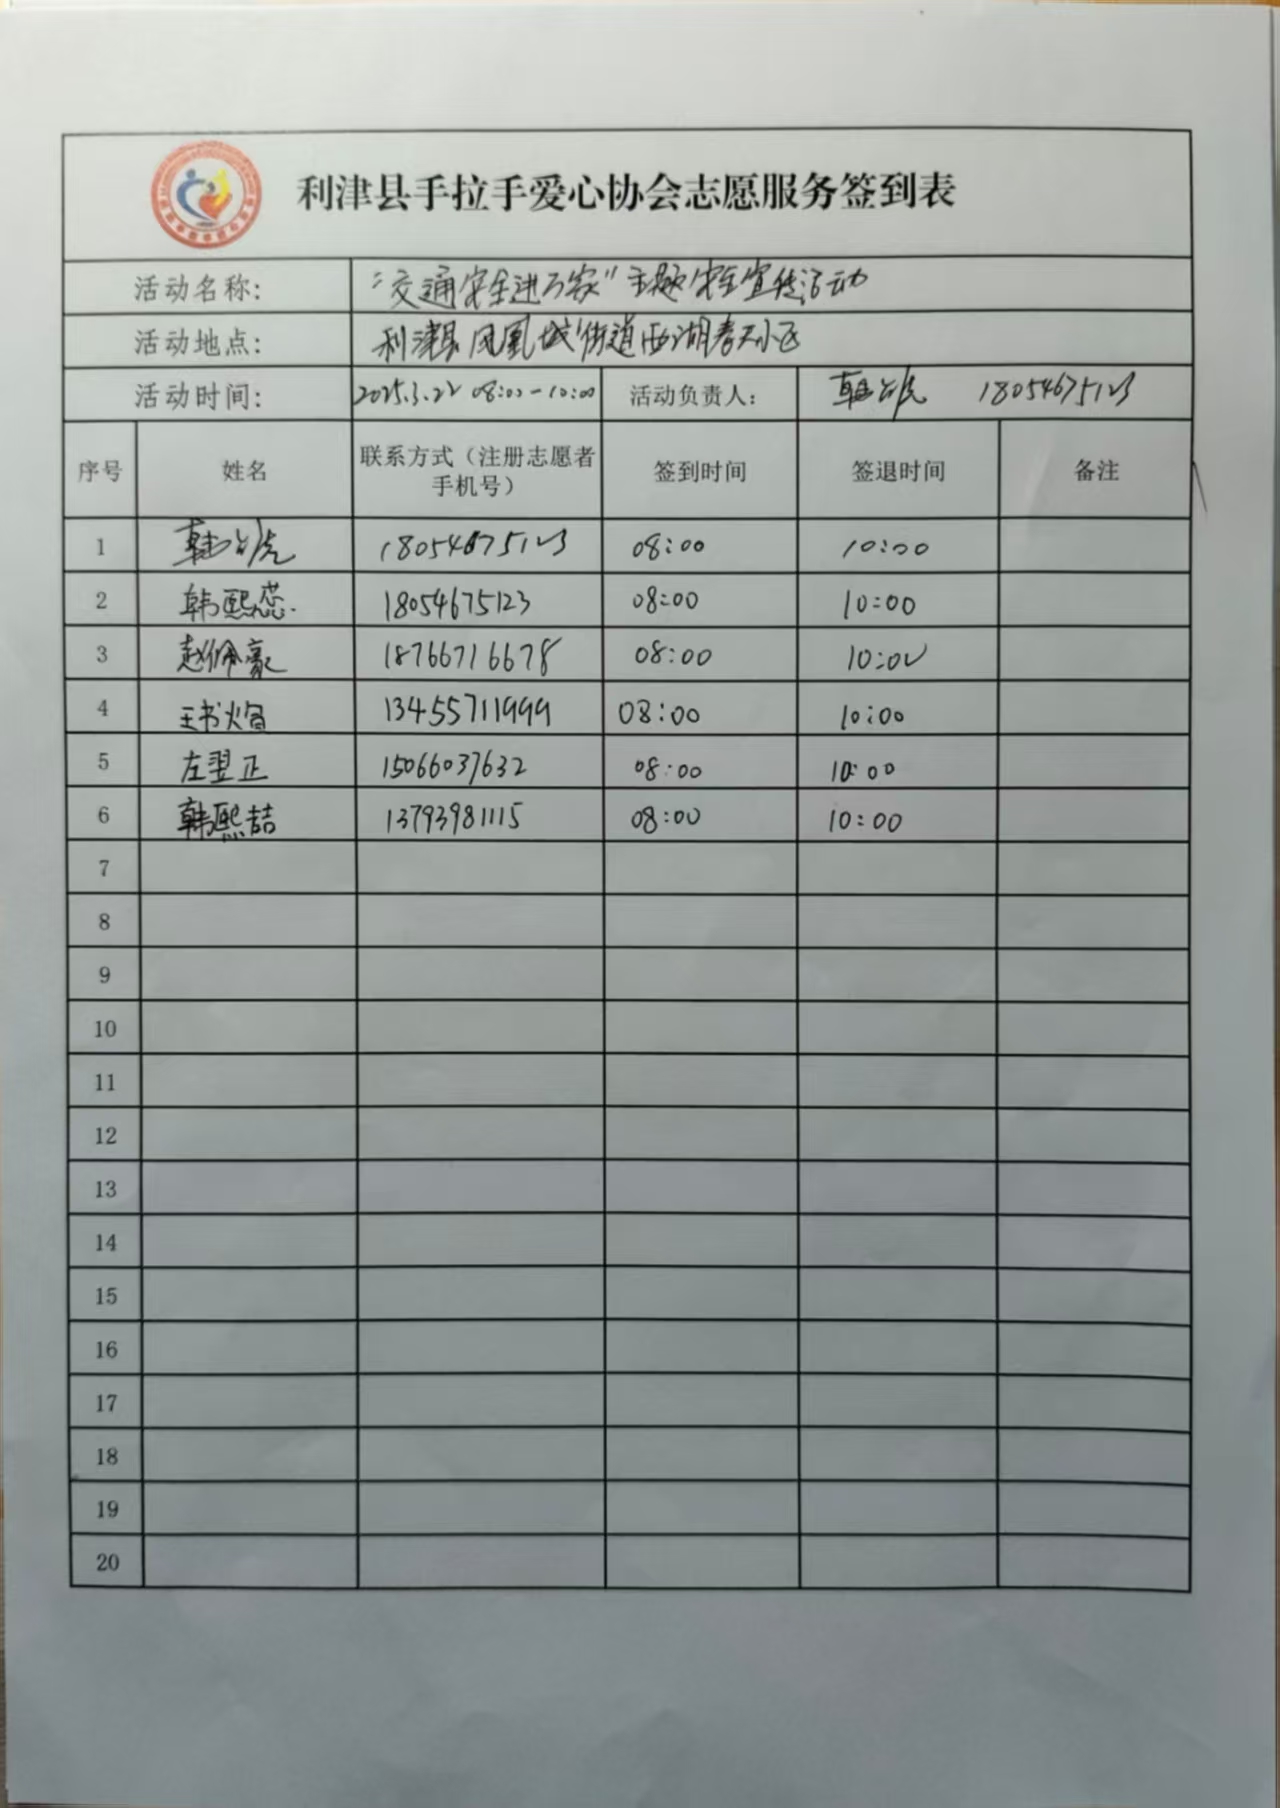 利津县手拉手爱心协会志愿服务签到表
活动名称: "交通安全进万家"主题安全宣传活动
活动地点: 利津县凤凰城街道西湖春天小区
活动时间: 2025.3.22 08:00-10:00 活动负责人: 韩 18054675123
序号 姓名 联系方式（注册志愿者手机号） 签到时间 签退时间 备注
1 韩 18054675123 08:00 10:00
2 韩熙蕊 18054675123 08:00 10:00
3 赵佩豪 18766716678 08:00 10:00
4 王书焰 13455711999 08:00 10:00
5 左翌正 15066037632 08:00 10:00
6 韩熙喆 13793981115 08:00 10:00
7
8
9
10
11
12
13
14
15
16
17
18
19
20